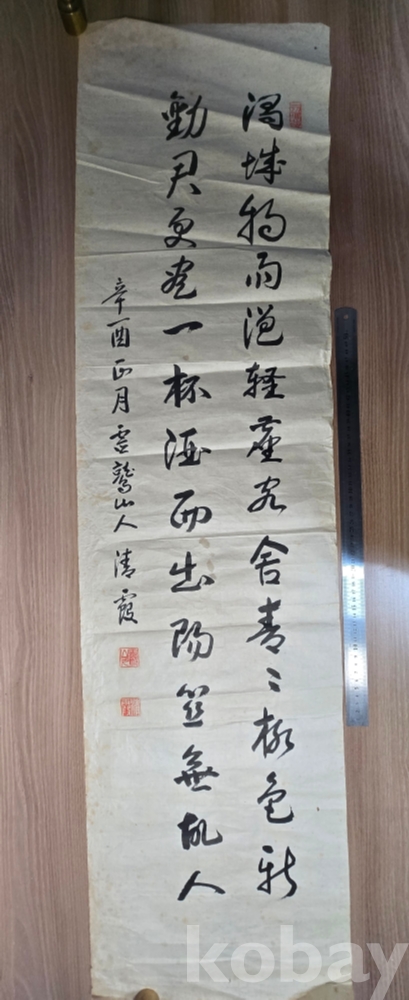 渭城朝雨浥軽塵客舎青々柳色新
勧君更尽一杯酒西出陽関無故人
辛酉正月霊鷲山人 清霞
kobay